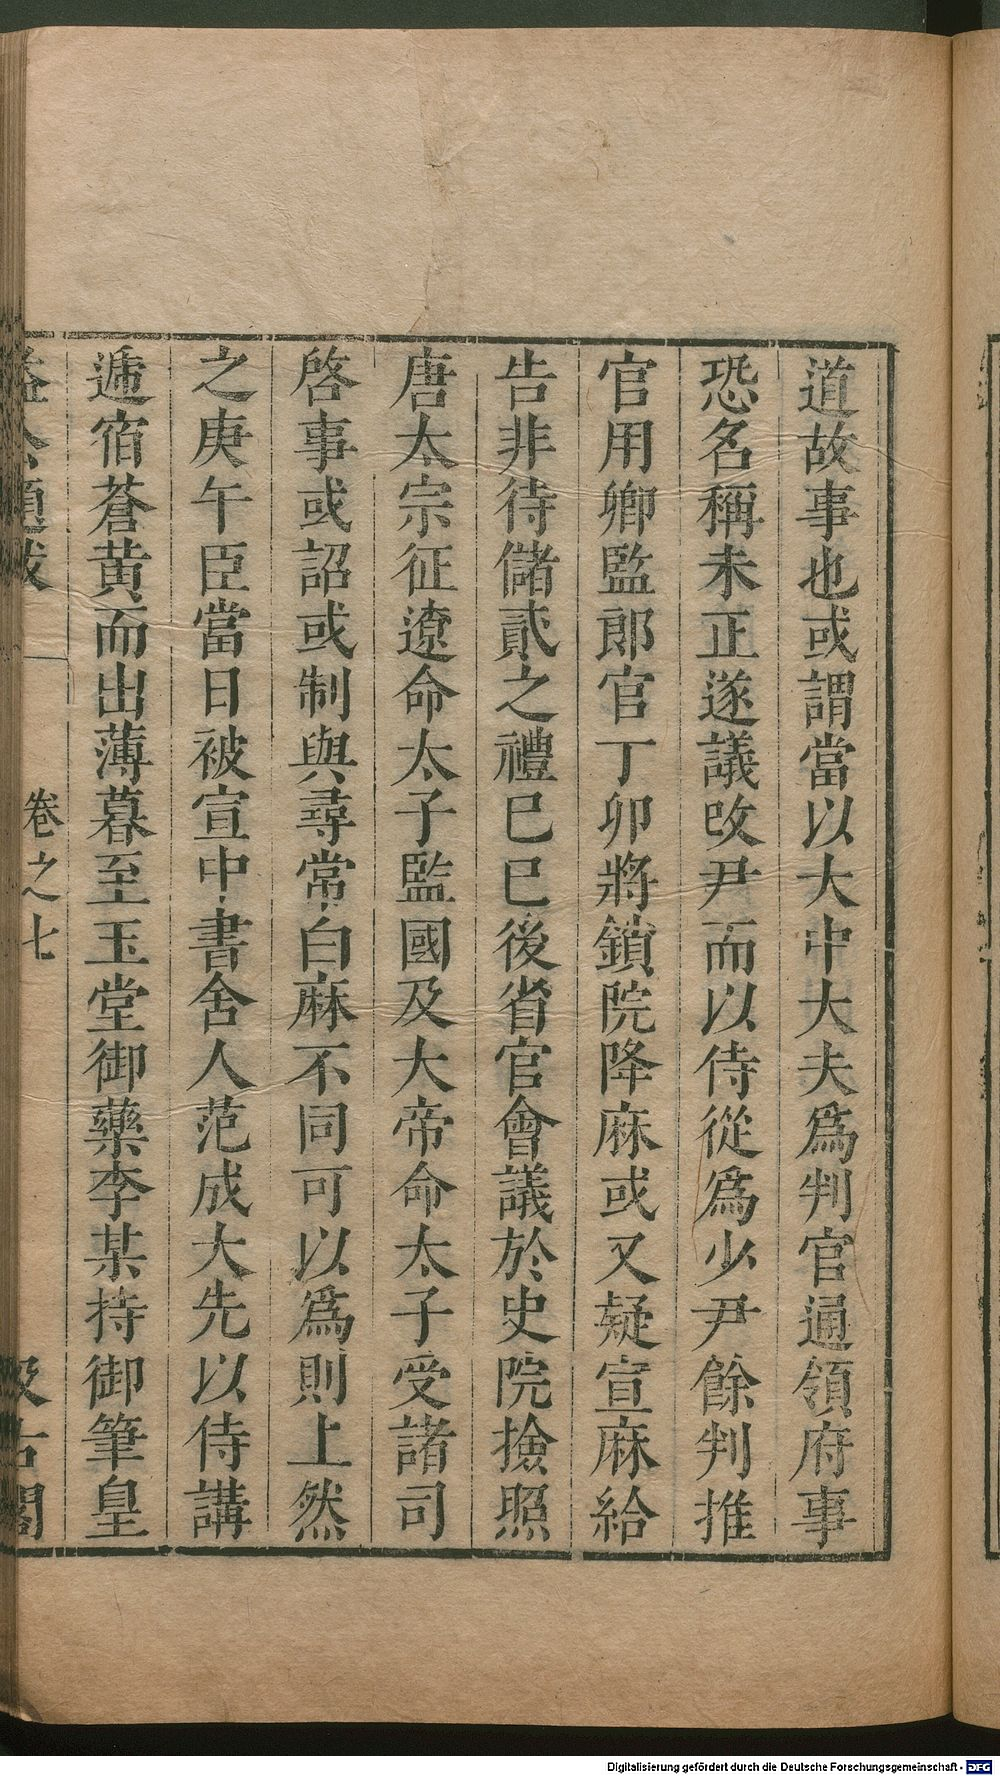 道故事也或謂當以大中大夫爲判官通領府事
恐名稱未正遂議改尹而以侍從爲少尹餘判推
官用卿監郎官丁卯將鎖院降麻或又疑宣麻給
告非待儲貳之禮已巳後省官會議於史院撿照
唐太宗征遼命太子監國及大帝命太子受諸司
啓事或詔或制與尋常白麻不同可以爲則上然
之庚午臣當日被宣中書舍人范成大先以侍講
遞宿蒼黄而出薄暮至玉堂御藥李某持御筆皇
益公題跋
卷之七
汲古閣
Digitalisierung gefördert durch die Deutsche Forschungsgemeinschaft - DFG